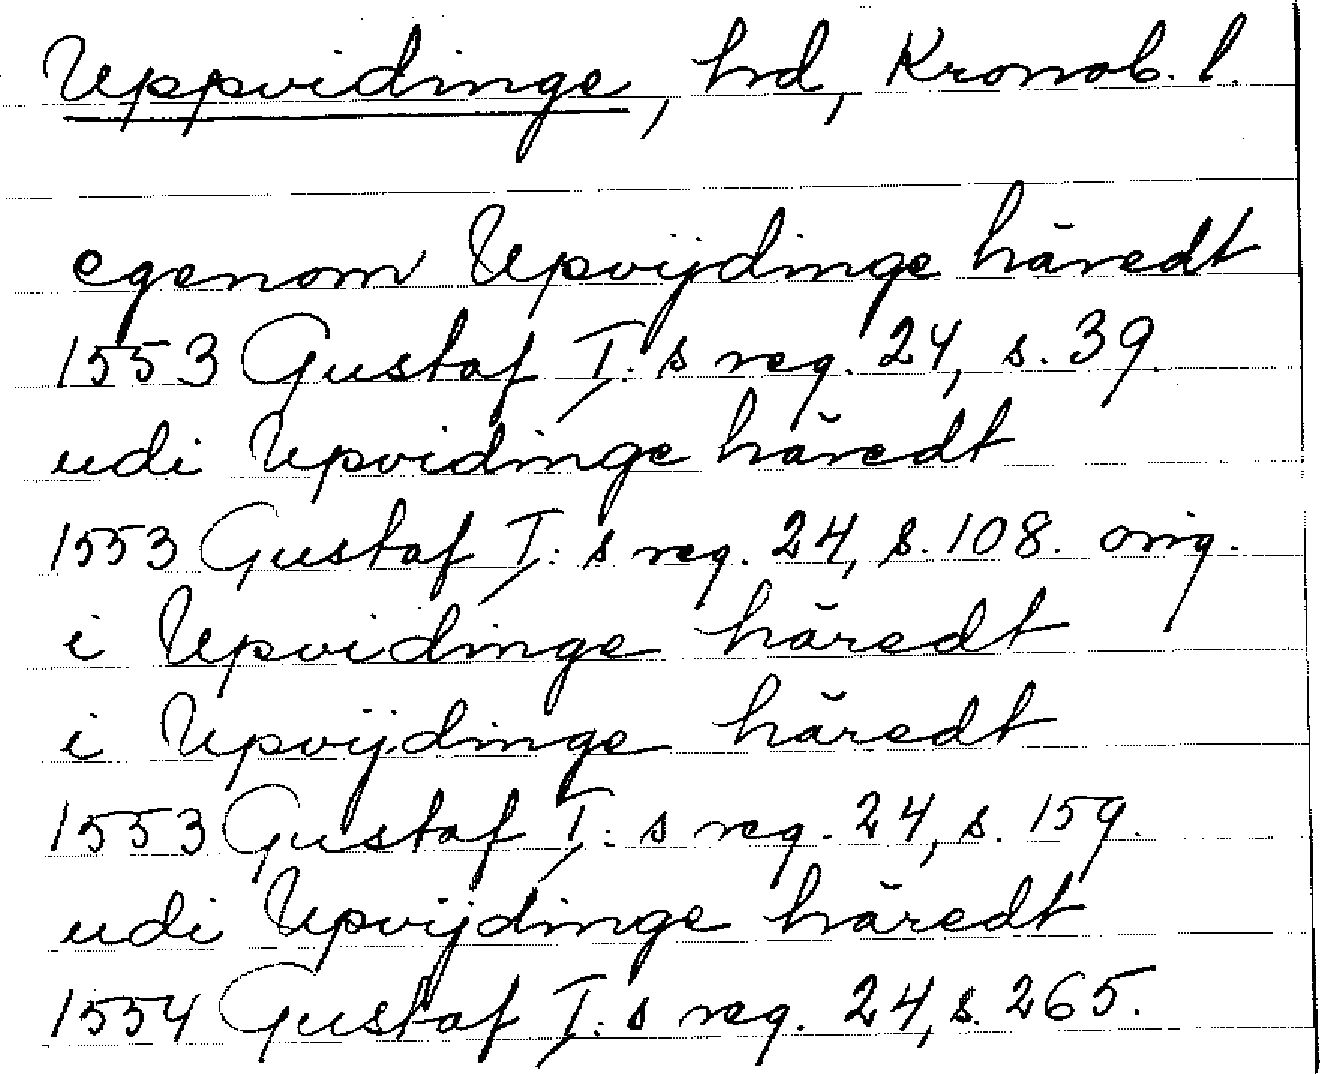 Uppvidinge, hrd, Kronob. l.
egenom Upvijdinge häredt
1553 Gustaf I:s reg. 24, s. 39.
udi Upvidinge häredt
1553 Gustaf I:s reg. 24, s. 108. orig.
i Upvidinge häredt
i Upvijdinge häredt
1553 Gustaf I:s reg. 24, s. 159.
udi Upvijdinge häredt
1554 Gustaf I:s reg. 24, s. 265.